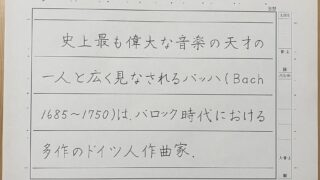 史上最も偉大な音楽の天才の
一人と広く見なされるバッハ(Bach
1685～1750)は、バロック時代における
多作のドイツ人作曲家.